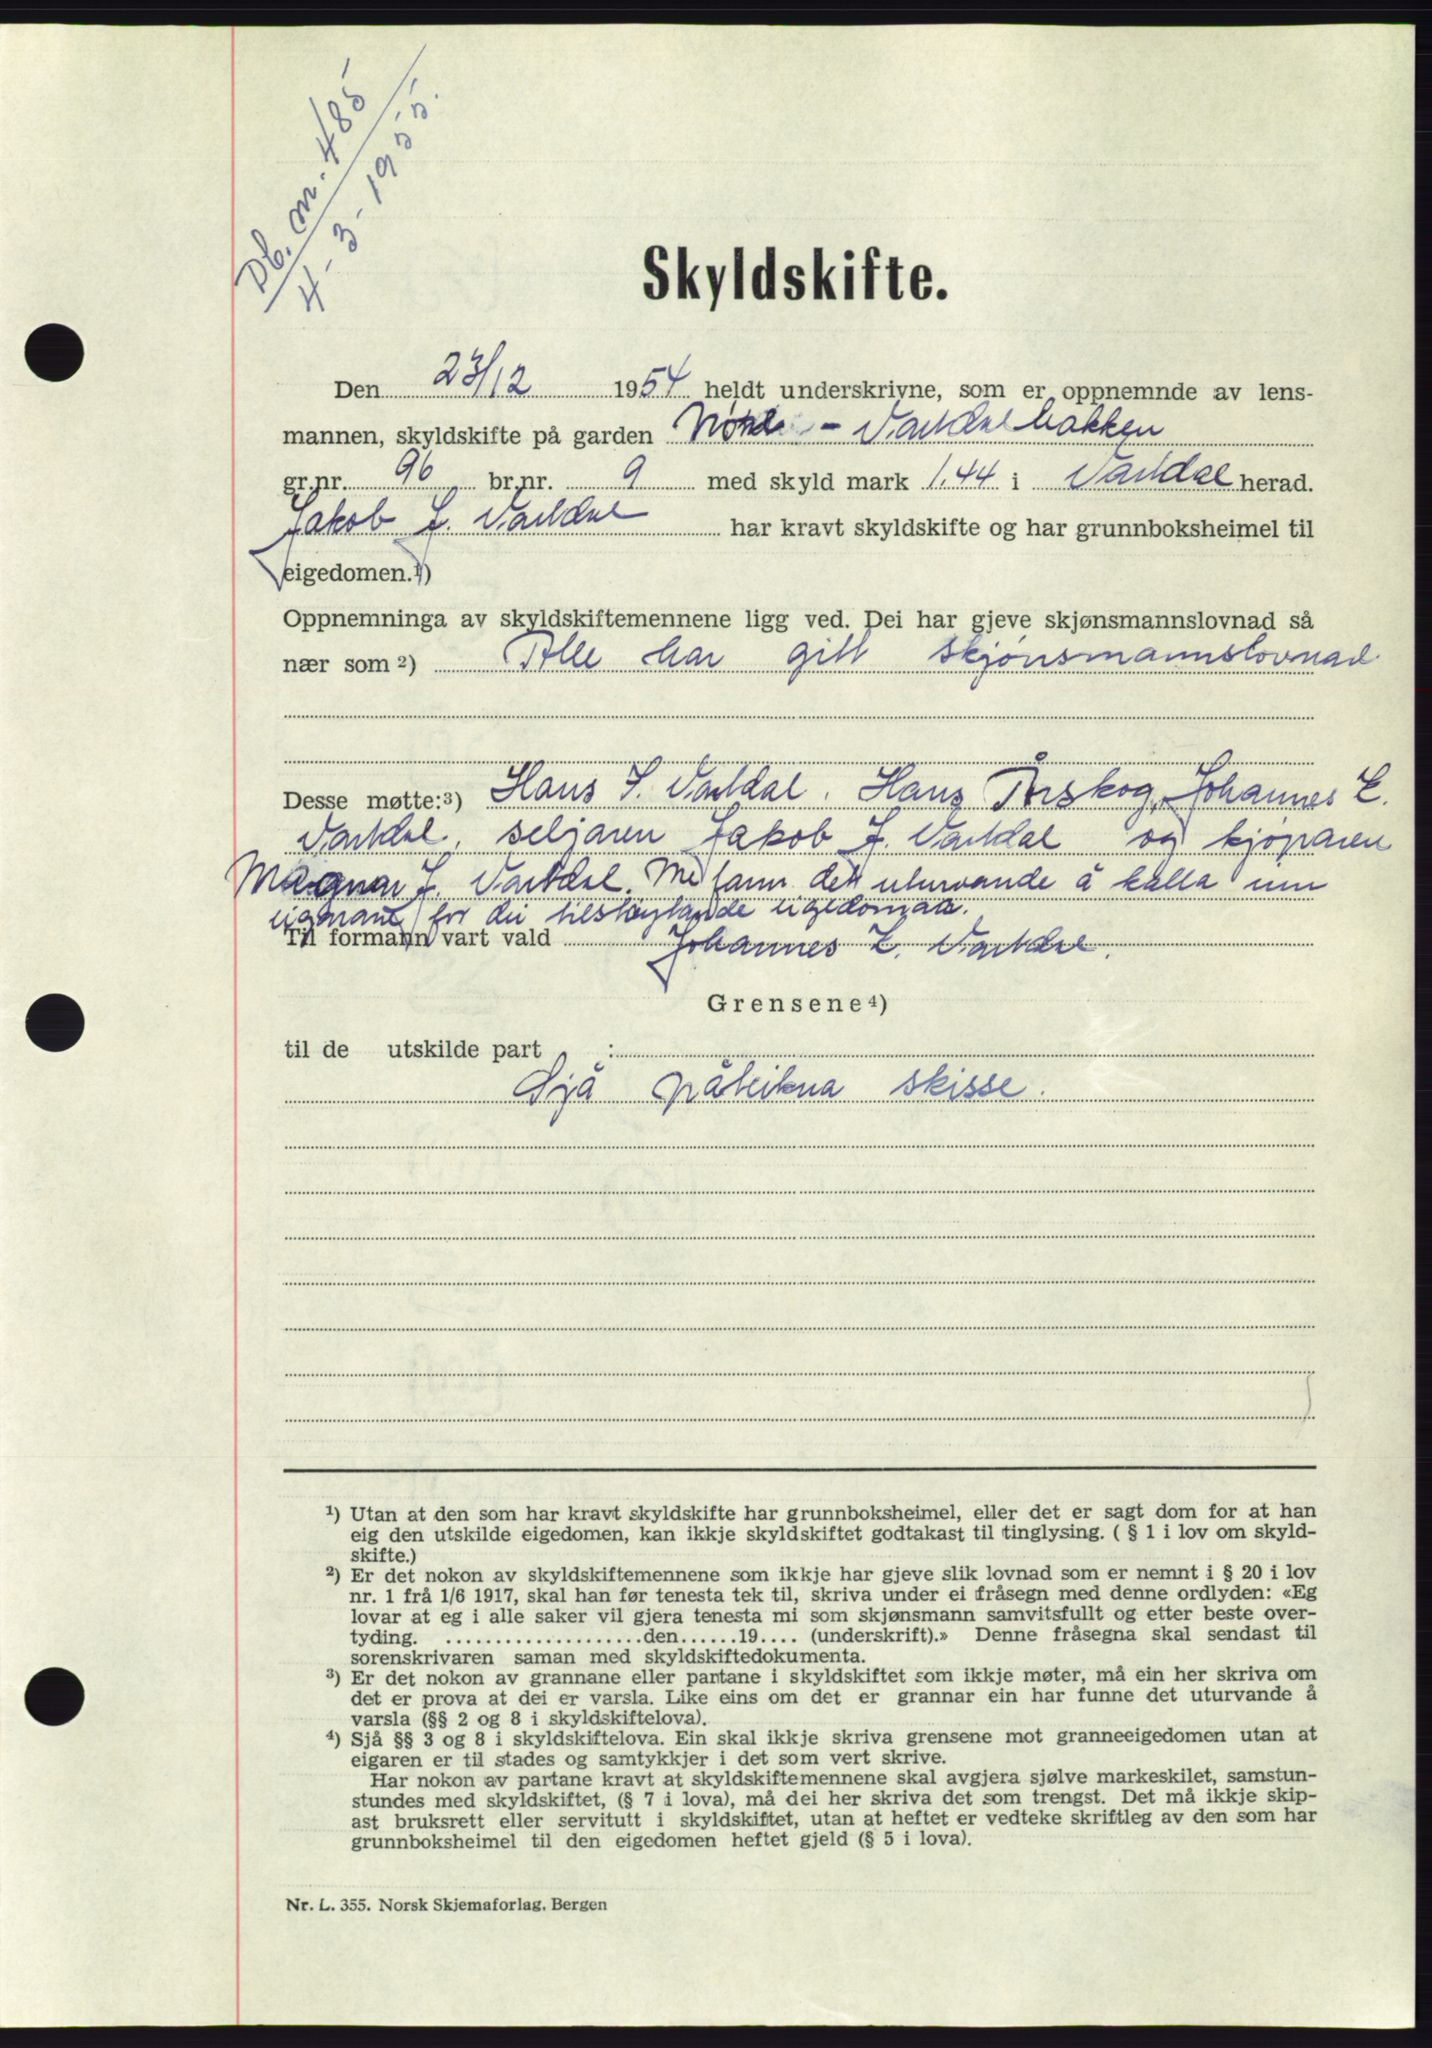 Db. nr. 485
4-3-1955.
Skyldskifte.
Den 23/12 1954 heldt underskrivne, som er oppnemnde av lens-
mannen, skyldskifte på garden - Vartdalbakken
gr.nr. 96 br.nr. 9 med skyld mark 1,44 i Vartdal herad.
Jakob J. Vartdal har kravt skyldskifte og har grunnboksheimel til
eigedomen.1)
Oppnemninga av skyldskiftemennene ligg ved. Dei har gjeve skjønsmannslovnad så
nær som 2) Alle har gitt skjønsmannslovnad
Desse møtte:3) Hans S. Vartdal, Hans Årskog, Johannes E.
Vartdal, seljaren Jakob J. Vartdal og kjøparen
Magnar J. Vartdal. Me fann det uturvande å kalla inn
eigarane for dei tilstøytande eigedomar.
Til formann vart vald Johannes E. Vartdal.
Grensene4)
til de utskilde part :
Sjå påteikna skisse.
1) Utan at den som har kravt skyldskifte har grunnboksheimel, eller det er sagt dom for at han
eig den utskilde eigedomen, kan ikkje skyldskiftet godtakast til tinglysing. ( § 1 i lov om skyld-
skifte.)
2) Er det nokon av skyldskiftemennene som ikkje har gjeve slik lovnad som er nemnt i § 20 i lov
nr. 1 frå 1/6 1917, skal han før tenesta tek til, skriva under ei fråsegn med denne ordlyden: «Eg
lovar at eg i alle saker vil gjera tenesta mi som skjønsmann samvitsfullt og etter beste over-
tyding. ....................den......19.... (underskrift).» Denne fråsegna skal sendast til
sorenskrivaren saman med skyldskiftedokumenta.
3) Er det nokon av grannane eller pantane i skyldskiftet som ikkje møter, må ein her skriva om
det er prova at dei er varsla. Like eins om det er grannar ein har funne det uturvande å
varsla (§§ 2 og 8 i skyldskiftelova).
4) Sjå §§ 3 og 8 i skyldskiftelova. Ein skal ikkje skriva grensene mot granneeigedomen utan at
eigaren er til stades og samtykkjer i det som vert skrive.
Har nokon av partane kravt at skyldskiftemennene skal avgjera sjølve markeskilet, samstun-
stundes med skyldskiftet, (§ 7 i lova), må dei her skriva det som trengst. Det må ikkje skip-
ast bruksrett eller servitutt i skyldskiftet, utan at heftet er vedteke skriftleg av den som har
grunnboksheimel til den eigedomen heftet gjeld (§ 5 i lova).
Nr. L. 355. Norsk Skjemaforlag, Bergen